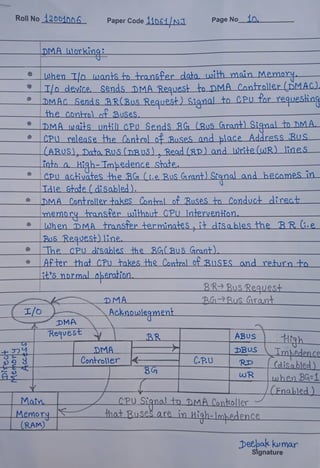 Roll No 12001006 Paper Code 11051/NJ Page No 10
DMA Working:
• When I/O wants to transfer data with main Memory.
• I/O device sends DMA Request to DMA Controller (DMAC).
• DMAC Sends BR (Bus Request) Signal to CPU for requesting
the control of Buses.
• DMA waits until CPU Sends BG (Bus Grant) Signal to DMA.
• CPU release the Control of Buses and place Address Bus
(ABUS), Data Bus (DBUS), Read (RD) and Write (WR) lines
into a High-Impedence state.
• CPU activates the BG (i.e Bus Grant) Signal and becomes in
Idle State (disabled).
• DMA Controller takes Control of Buses to Conduct direct
memory transfer without CPU Intervention.
• When DMA transfer terminates, it disables the BR (i.e
Bus Request) line.
• The CPU disables the BG (Bus Grant).
• After that CPU takes the Control of BUSES and return to
it's normal operation.
BR→Bus Request
BG→Bus Grant
I/O
DMA
Acknowlegment
DMA
Request
Direct
Memory
Access
DMA
Controller
BR
BG
C.P.U
ABUS
DBUS
RD
WR
High
Impedence
(disabled)
when BG=1
(Enabled)
Main
Memory
(RAM)
CPU Signal to DMA Controller
that Buses are in High-Impedence
Deepak Kumar
Signature